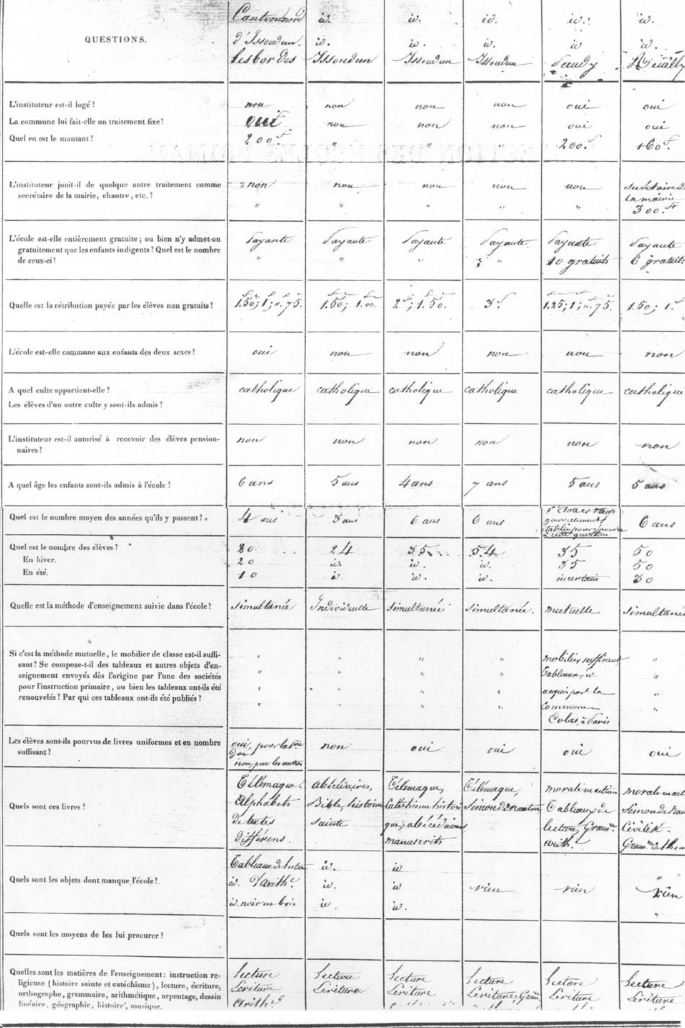 QUESTIONS.
Canton nord id. id. id. id. id.
d'Issoudun id. id. id. id id.
Les Bordes Issoudun Issoudun Issoudun
L'instituteur est-il logé ? non non non non oui oui
La commune lui fait-elle un traitement fixe ? oui non non non oui oui
Quel en est le montant ? 200 f. " " 200 f. 160 f.
L'instituteur jouit-il de quelque autre traitement comme non non non non non secrétaire de
secrétaire de la mairie, chantre, etc. ? " " " " " la mairie
300 f.
L'école est-elle entièrement gratuite ; ou bien n'y admet-on Payante Payante Payante Payante Payante Payante
gratuitement que les enfants indigents ? Quel est le nombre " " " " 10 gratuits 6 gratuits
de ceux-ci ?
Quelle est la rétribution payée par les élèves non gratuits ? 1.50; 1; 0.75. 1.50; 1.00. 2 f; 1.50. 3 f. 1.25; 1; 0.75. 1.50; 1 f.
L'école est-elle commune aux enfants des deux sexes ? oui non non non non non
A quel culte appartient-elle ? catholique catholique catholique catholique catholique catholique
Les élèves d'un autre culte y sont-ils admis ?
L'instituteur est-il autorisé à recevoir des élèves pension- non non non non non non
naires ?
A quel âge les enfants sont-ils admis à l'école ? 6 ans 5 ans 4 ans 7 ans 5 ans 5 ans
Quel est le nombre moyen des années qu'ils y passent ? 4 ans 3 ans 6 ans 6 ans 6 ans
Quel est le nombre des élèves ? 20 24 35 54 35 50
En hiver. 20 id. id. id. 35 50
En été. 10 id. id. id. incertain 20
Quelle est la méthode d'enseignement suivie dans l'école ? simultanée Individuelle simultanée simultanée. mutuelle simultanée
Si c'est la méthode mutuelle, le mobilier de classe est-il suffi- " " " " mobilier suffisant "
sant ? Se compose-t-il des tableaux et autres objets d'en- " " " " Tableaux, id. "
seignement envoyés dès l'origine par l'une des sociétés " " " " acquis par la "
pour l'instruction primaire, ou bien les tableaux ont-ils été commune
renouvelés ? Par qui ces tableaux ont-ils été publiés ? Colas, à Paris
Les élèves sont-ils pourvus de livres uniformes et en nombre non oui oui oui oui
suffisant ? non, pour les autres
Quels sont ces livres ? Télémaque, abécédaires, Télémaque, Télémaque, morale en action morale en act
Alphabets Bible, histoire catéchisme histori Simon de Nantua Tableaux de Simon de Nan
de textes sainte que, abécédaires lecture, Gram. Civilité.
différens. manuscrits arith.
Quels sont les objets dont manque l'école ? Tableaux de lecture id. id rien rien rien
id. d'arith. id. id
id. noir en bois id. id.
Quels sont les moyens de les lui procurer ?
Quelles sont les matières de l'enseignement : instruction re- Lecture Lecture Lecture Lecture Lecture Lecture
ligieuse (histoire sainte et catéchisme), lecture, écriture, Ecriture Ecriture Ecriture Ecriture Gram. Ecriture Ecriture
orthographe, grammaire, arithmétique, arpentage, dessin arith.
linéaire, géographie, histoire, musique.